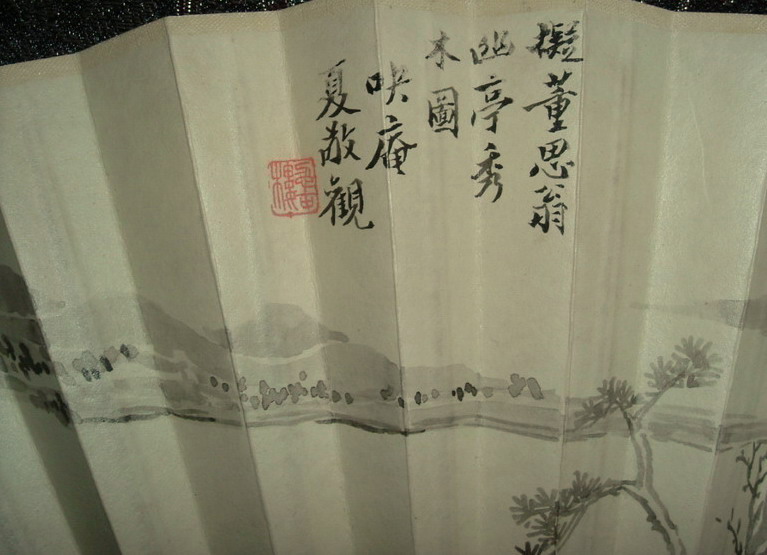 擬董思翁
幽亭秀
木圖
吷庵
夏敬觀